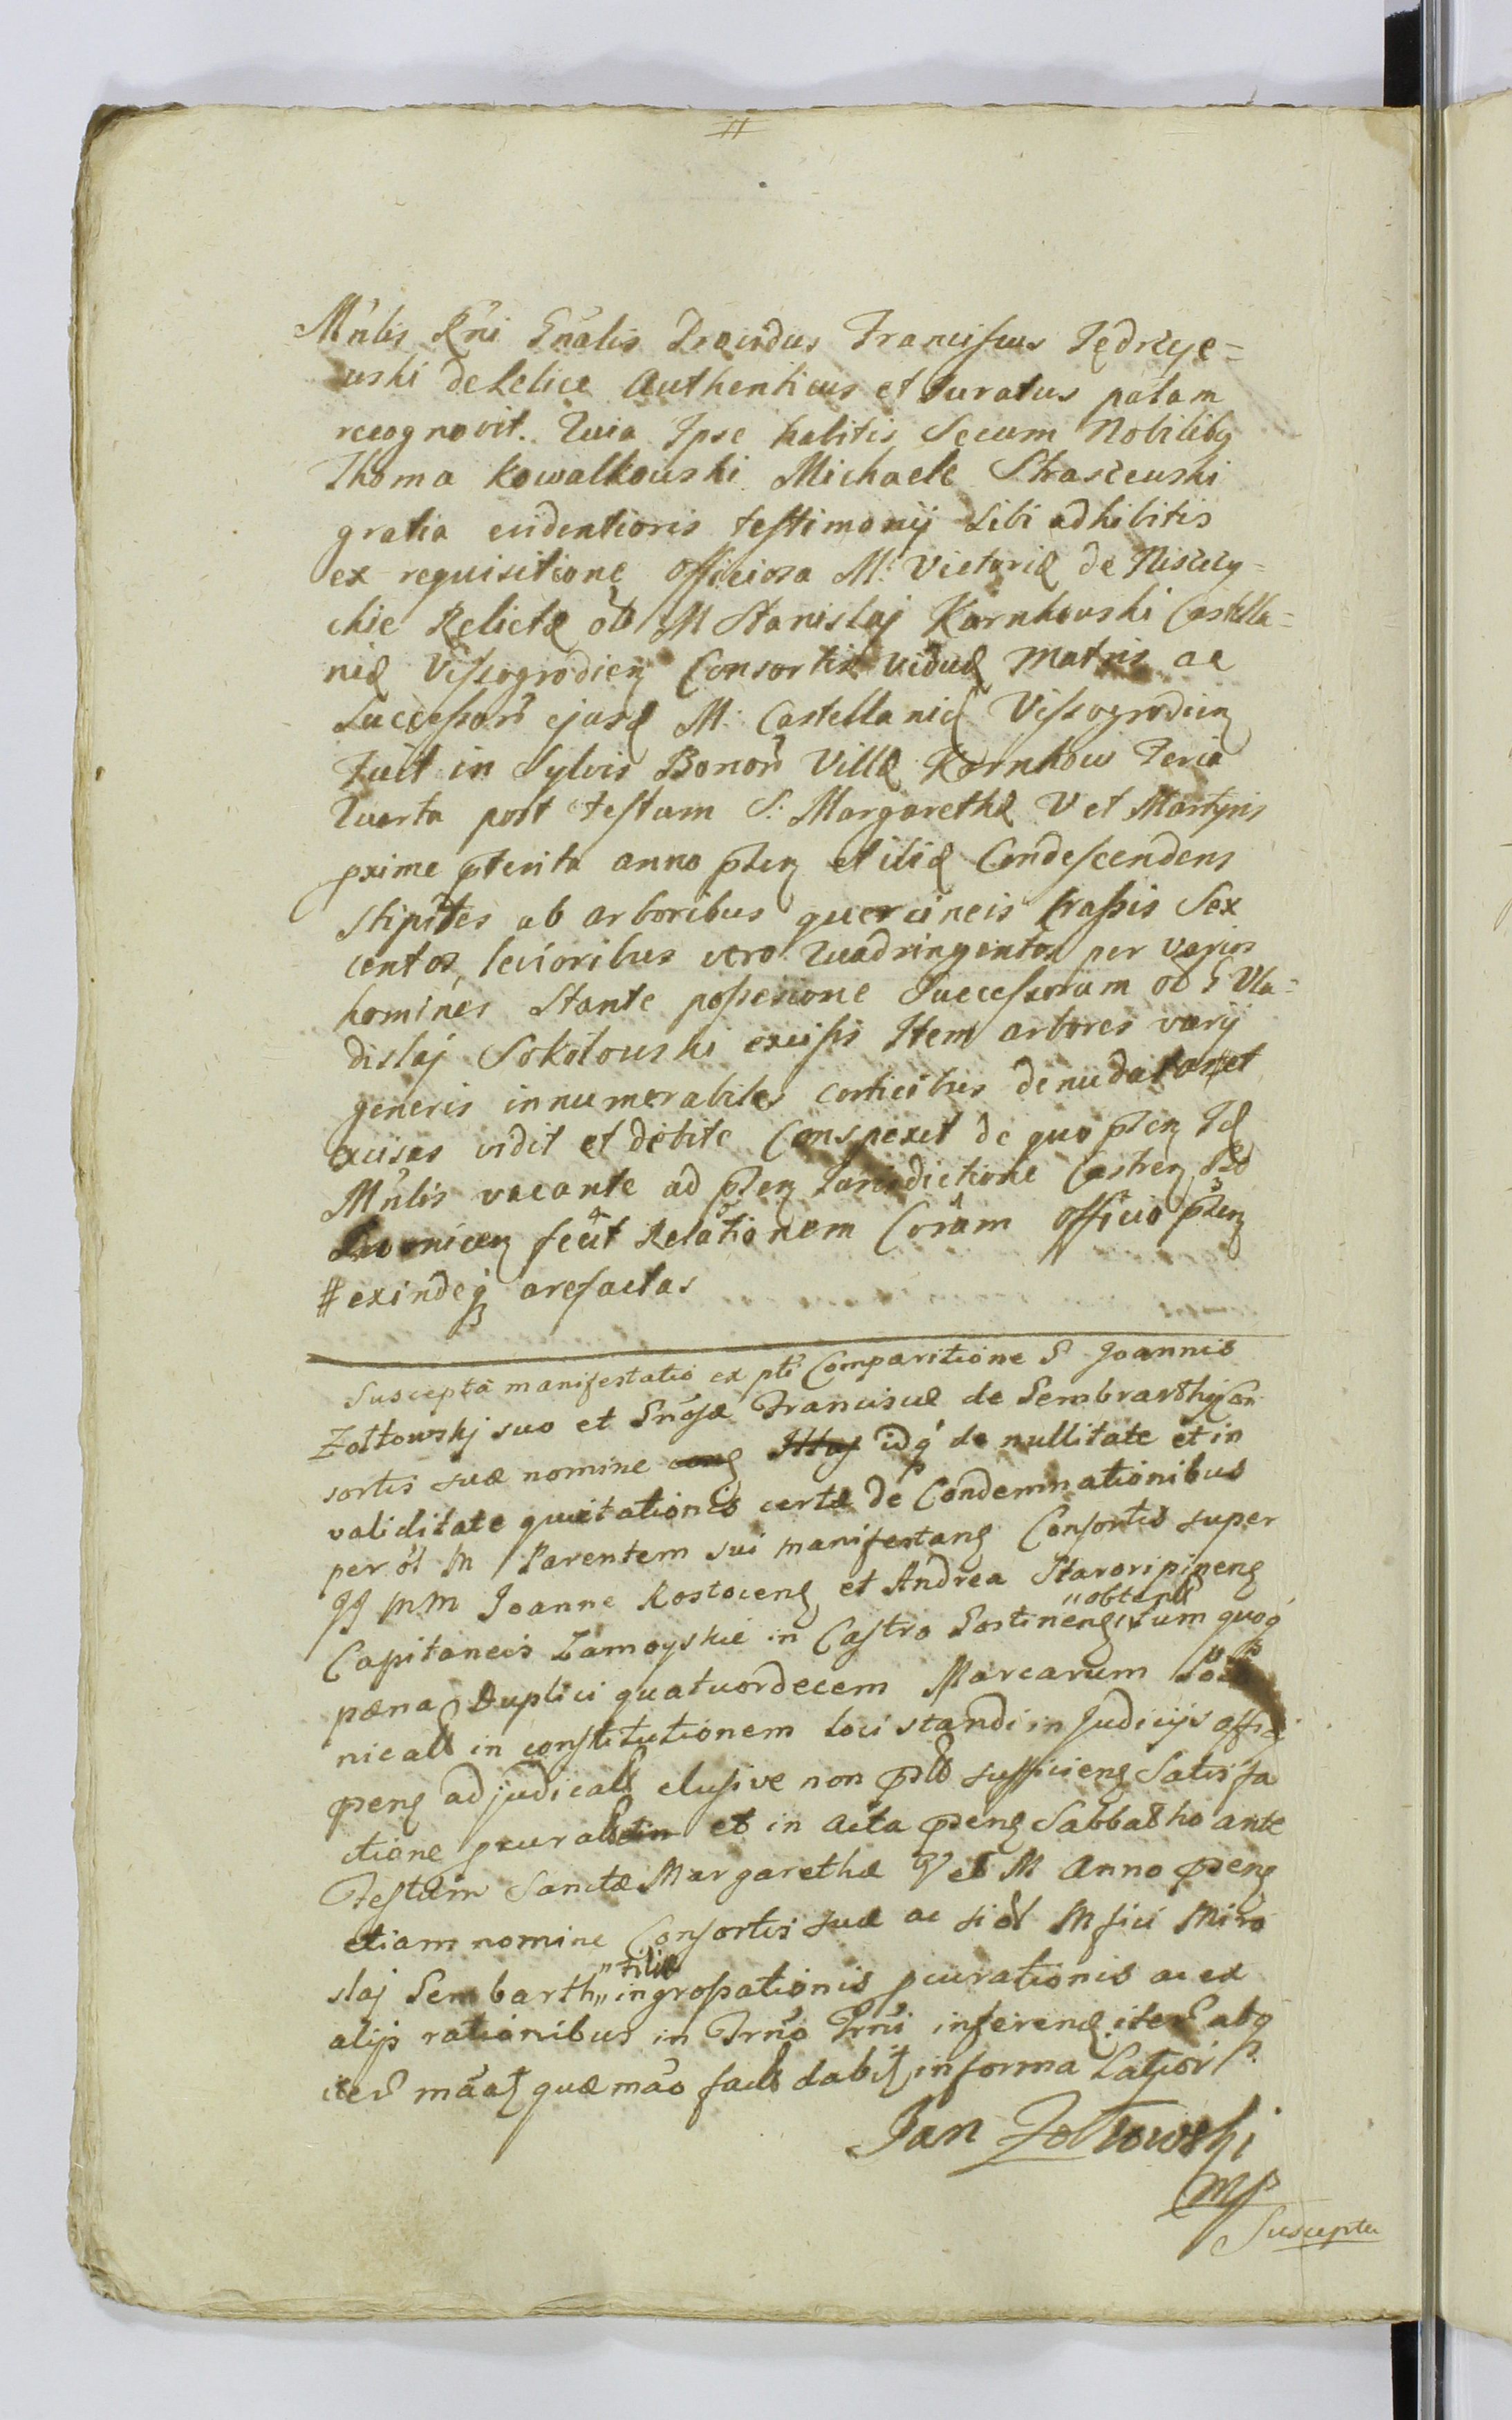 Mnlis Rni Gnalis Providus Franciscus Jędrzye=
wski de Lelice Authenticus et Juratus palam
recognovit. Quia Ipse habitis Secum Nobilibq
Thoma Kowalkowski Michaele Straszewski
gratia evidentioris testimonij Sibi adhibitis
ex requisitione officiosa M. Victoriæ de Niszczy=
ckie Relictæ ol M Stanislaj Karnkowski Castella=
nidæ Vissogrodien Consortis viduæ Matris ac
Successor ejusd M. Castellanid Vissogrodien
Fuit in Sylvis Bonor Villæ Karnkow Feria
Quarta post Festum S. Margarethæ V et Martyris
pxime pterita anno pten et ibid Condescendens
stipites ab arboribus quercineis crassis Sex
centos, levioribus vero Quadringentos per varios
homines Stante possessione Successorum ol G Vla=
dislaj Sokołowski excissis Item arbores varij
generis innumerabiles corticibus denudatas # et
excisas vidit et debite Conspexit de quo pten Id
Mnlis vacante ad pten Jurisdictione Castren
fecit Relationem Coram officio pten
# exindeq arefactas
Suscepta manifestatio ex pti Comparitione G Joannis
Zołtowskj suo et Gnosæ Franciscæ de Sembrarthy Con
sortis suæ nomine idq de nullitate et in
validitate quietationis certæ de Condemnationibus
per ol M Parentem sui manifestang Consortis super
JJ MM Joanne Rostoceng et Andrea Staroripipeng
Capitaneis Zamoyskie in Castro "obtent
pæna Duplici quatuordecem Marcarum
nicall in constitutionem loci standi in Judicijs offic
pseng adjudicall elusive non sufficieng Satisfa
ctione pcurall et in acta pseng Sabbatho ante
Festum Sanctæ Margarethæ V et M Anno pseng
etiam nomine Consortis suæ ac si ol Mfici Miro
slaj Sembarth "filiæ ingrossationis pcurationis ac ex
alijs rationibus in Trno Trni inferend iter abq
iter quæ mao fact dabit in forma Latiori
Jan Zołtowski
mp
Suscepta